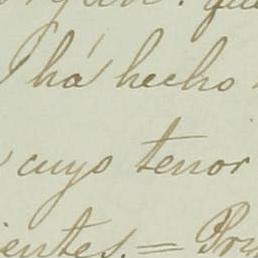 há hecho
cuyo tenor
ientes. = Pr